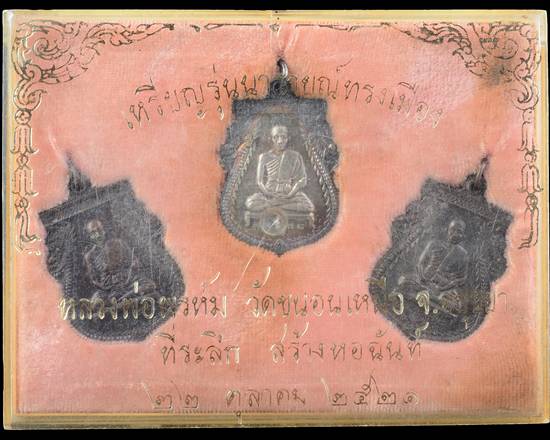 เหรียญรุ่นนารายณ์ทรงเมือง
หลวงพ่อพรหม วัดขนอนเหนือ จ.อยุธยา
ที่ระลึก สร้างหอฉันท์
๒๒ ตุลาคม ๒๕๒๑